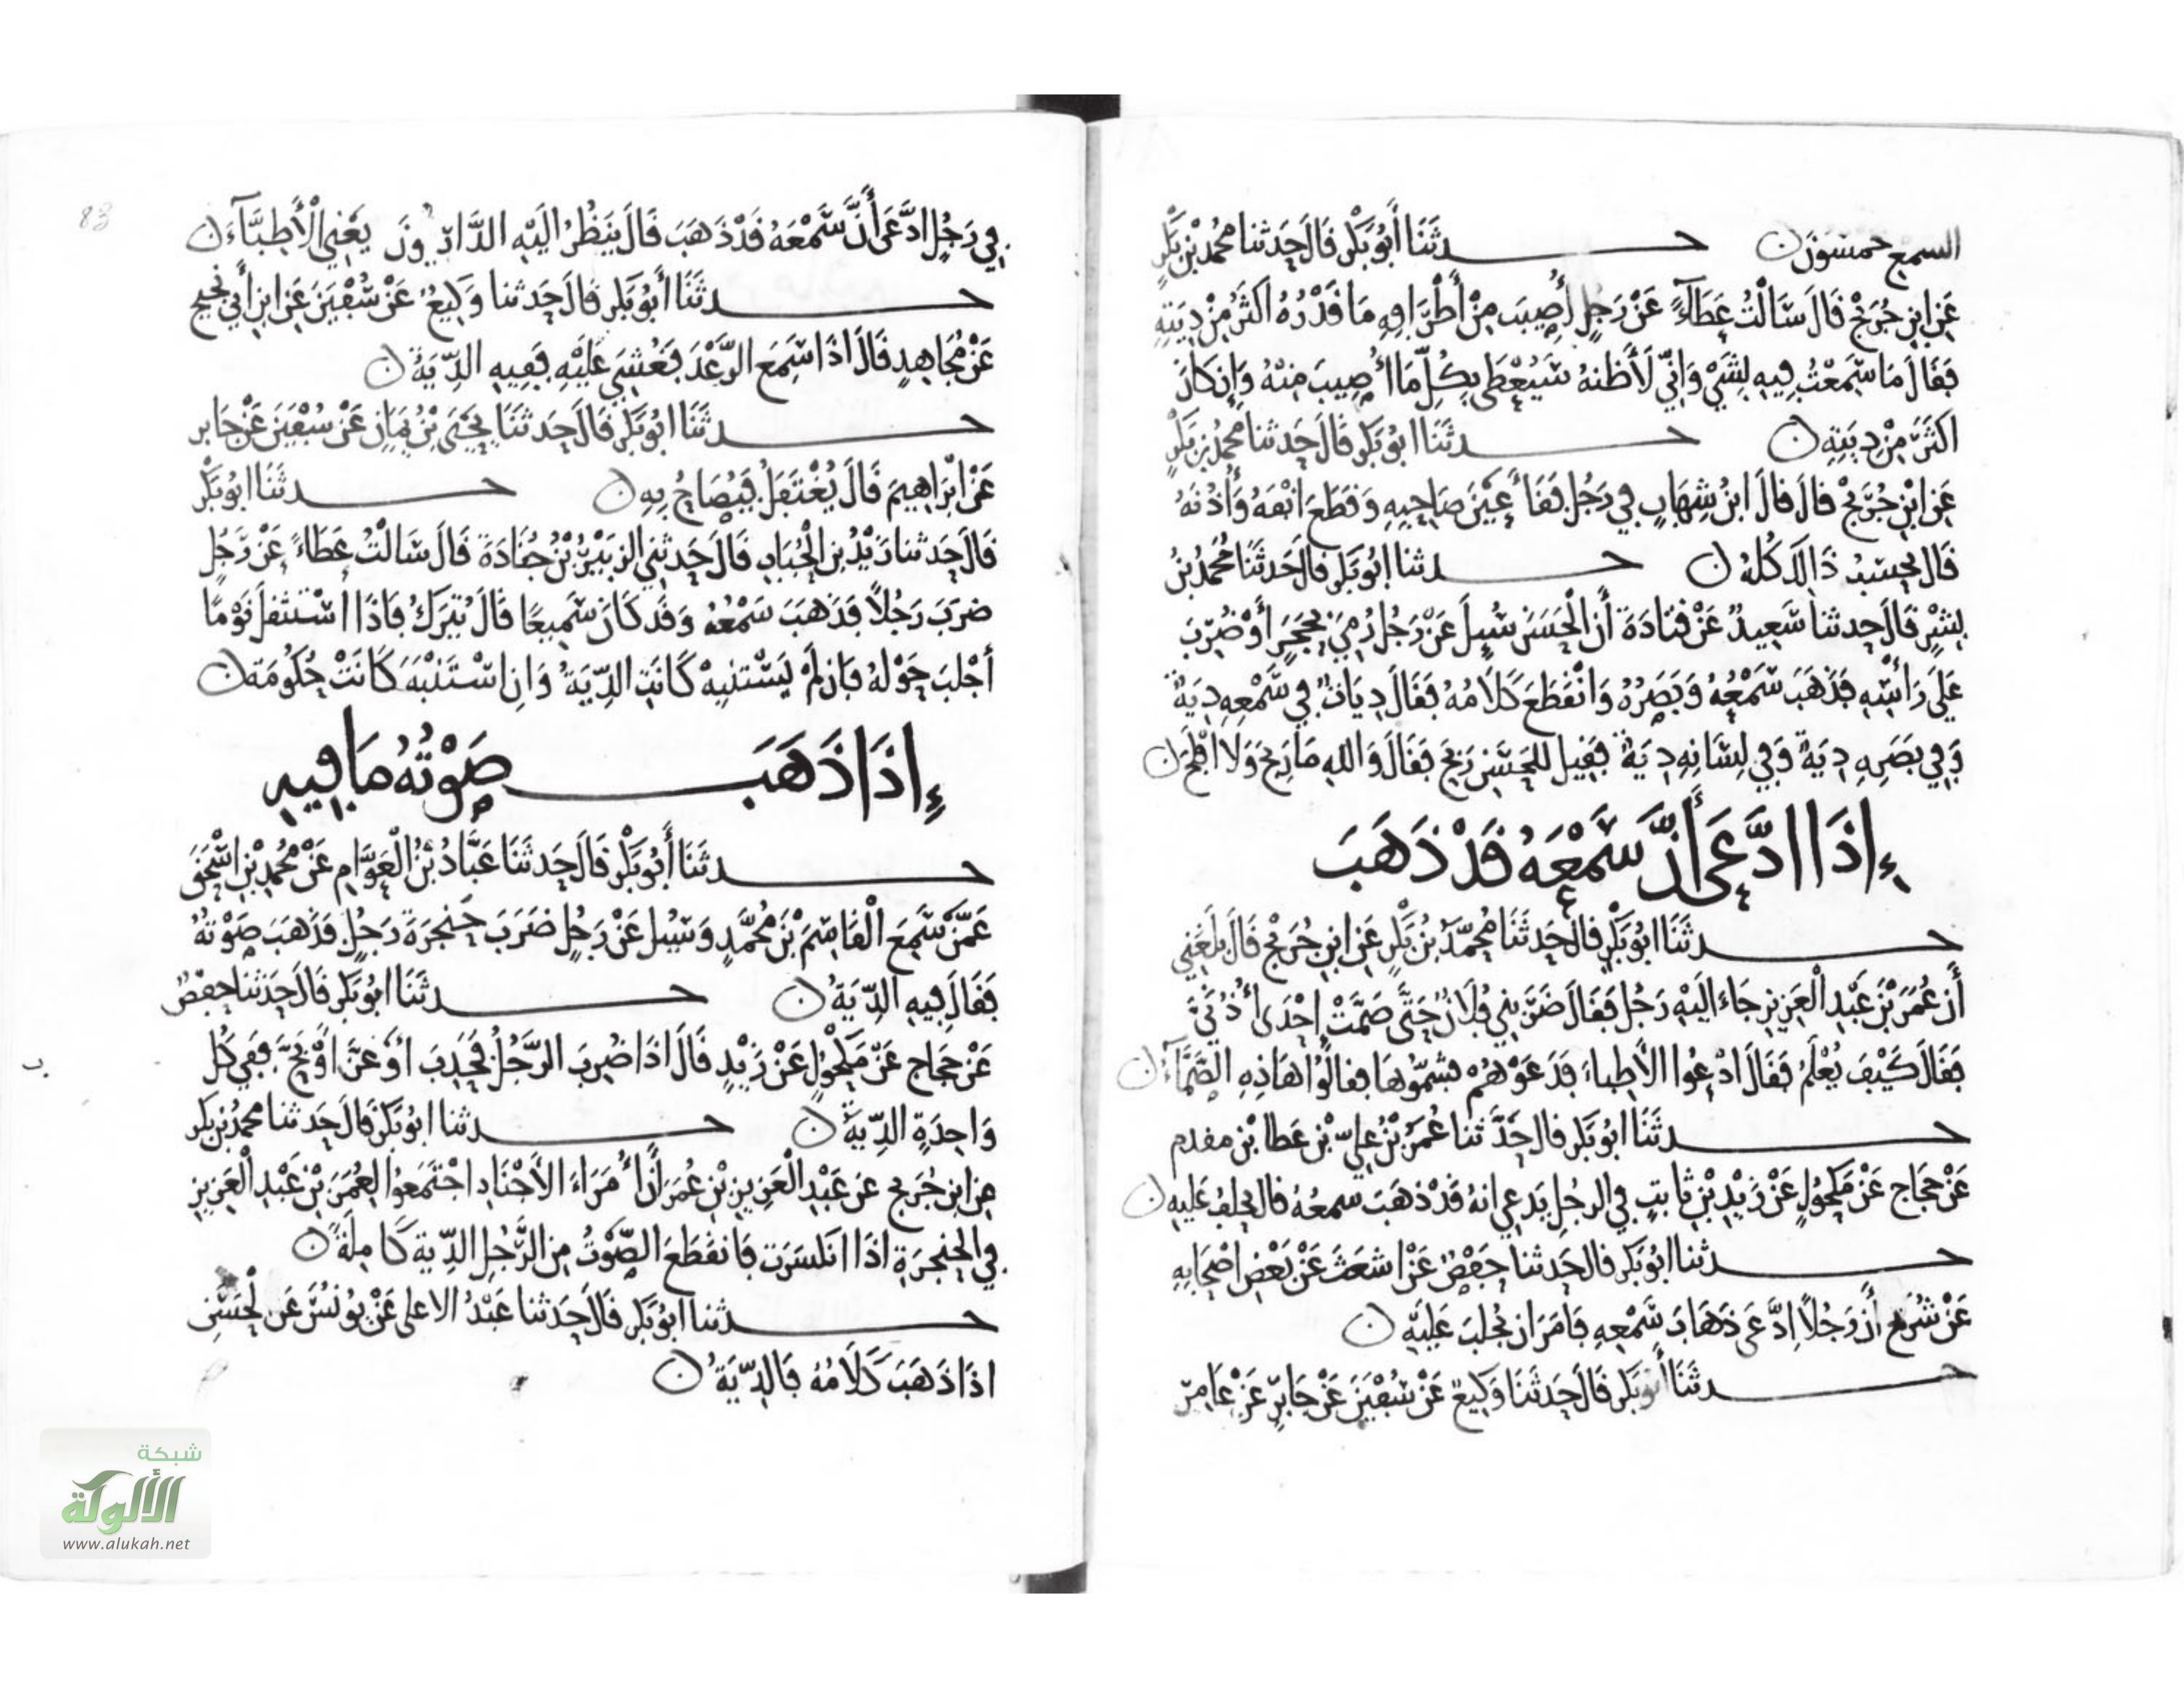 السمع خمسون ن حدثنا أبو بكر قال حدثنا محمد بن بكر
عن ابن جريج قال سالت عطاء عن رجل أصيب من أطرافه ما قدره اكثر من ديته
فقال ما سمعت فيه بشي واني لأظنه سيعطى بكل ما اصيب منه وإن كان
اكثر من ديته ن حدثنا ابو بكر قال حدثنا محمد بن بكر
عن ابن جريج قال قال ابن شهاب في رجل فقأ عين صاحبه وقطع انفه وأذنه
قال يحسب ذالك كله ن حدثنا ابو بكر قال حدثنا محمد بن
بشر قال حدثنا سعيد عن قتادة أن الحسن سيل عن رجل رمي بحجر أو ضرب
على رأسه فذهب سمعه وبصره وانقطع كلامه فقال ديات في سمعه دية
وفي بصره دية وفي لسانه دية فقيل للحسن ربح فقال والله ما ربح ولا افلح ن
إذا ادعى أن سمعه قد ذهب
حدثنا ابو بكر قال حدثنا محمد بن بكر عن ابن جريج قال بلغني
أن عمر بن عبد العزيز جاء اليه رجل فقال ضربني فلان حتى صمت احدى أذني
فقال كيف يعلم فقال ادعوا الأطباء فدعوهم فشموها فقالوا هاذه الصماء ن
حدثنا ابو بكر قال حدثنا عمر بن علي بن عطا بن مقدم
عن حجاج عن مكحول عن زيد بن ثابت في الرجل يدعي انه قد ذهب سمعه قال يحلف عليه ن
حدثنا ابو بكر قال حدثنا حفص عن اشعث عن بعض اصحابه
عن شريح أن رجلا إدعى ذهاب سمعه فامر ان يجلب عليه ن
حدثنا أبو بكر قال حدثنا وكيع عن سفين عن جابر عن عامر
83
في رجل ادعى أن سمعه قد ذهب قال ينظر اليه يعني الأطباء ن
حدثنا أبو بكر قال حدثنا وكيع عن سفين عن ابن أبي نجيح
عن مجاهد قال اذا سمع الرعد فغشي عليه ففيه الدية ن
حدثنا ابو بكر قال حدثنا يحيى بن يمان عن سفين عن جابر
عن ابراهيم قال يغتفل فيصاح به ن حدثنا ابو بكر
قال حدثنا زيد بن الحباب قال حدثني الزبير بن جنادة قال سالت عطاء عن رجل
ضرب رجلا فذهب سمعه وقد كان سميعا قال يترك فاذا استثقل نوما
أجلب حوله فإن لم يستنبه كانت الدية وان استنبه كانت حكومة ن
إذا ذهب صوته ما فيه
حدثنا أبو بكر قال حدثنا عباد بن العوام عن محمد بن إسحق
عمن سمع القاسم بن محمد وسيل عن رجل ضرب حنجرة رجل فذهب صوته
فقال فيه الدية ن حدثنا ابو بكر قال حدثنا حفص
عن حجاج عن مكحول عن زيد قال اذا ضرب الرجل فحدب او غن او بح ففي كل
واحدة الدية ن حدثنا ابو بكر قال حدثنا محمد بن بكر
عن ابن جريج عن عبد العزيز بن عمر أن أمراء الأجناد اجتمعوا لعمر بن عبد العزيز
في الحنجرة اذا انكسرت فانقطع الصوت من الرجل الدية كاملة ن
حدثنا ابو بكر قال حدثنا عبد الاعلى عن يونس عن الحسن
اذا ذهب كلامه فالدية ن
شبكة
الألوكة
www.alukah.net